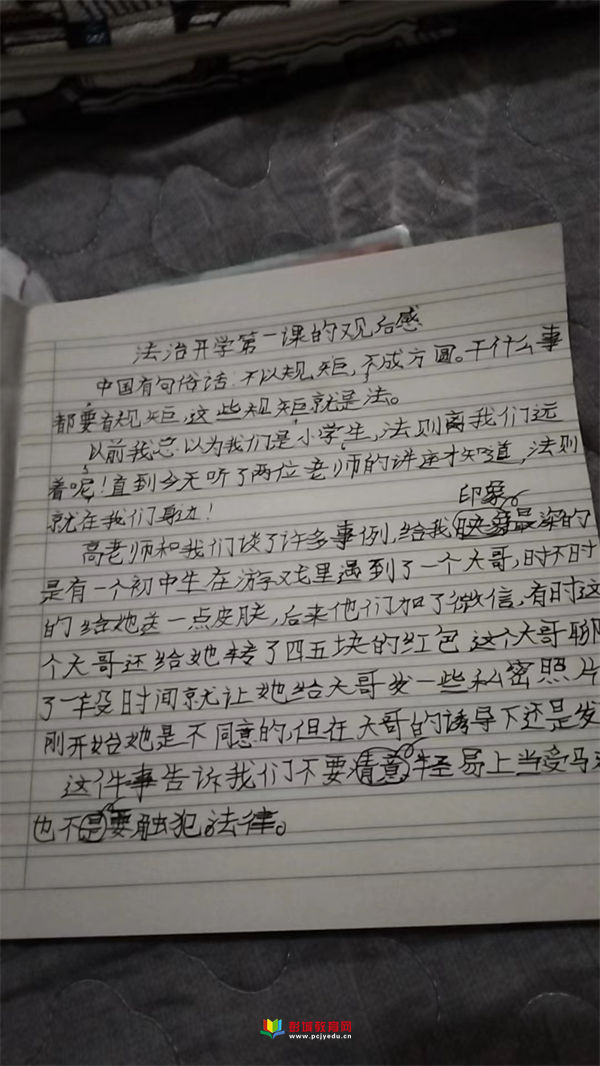 法治开学第一课的观后感
中国有句俗话:不以规矩,不成方圆。干什么事
都要有规矩,这些规矩就是法。
以前我总以为我们是小学生,法则离我们远
着呢!直到今天听了两位老师的讲座才知道,法则
就在我们身边!
印象
高老师和我们谈了许多事例,给我最深的
是有一个初中生在游戏里遇到了一个大哥,时不时
的给她送一点皮肤,后来他们加了微信,有时这
个大哥还给她转了四五块的红包 这个大哥聊
了一段时间就让她给大哥发一些私密照片
刚开始她是不同意的,但在大哥的诱导下还是发
这件事告诉我们不要轻易上当受
也不要触犯法律。
www.pcjyedu.cn